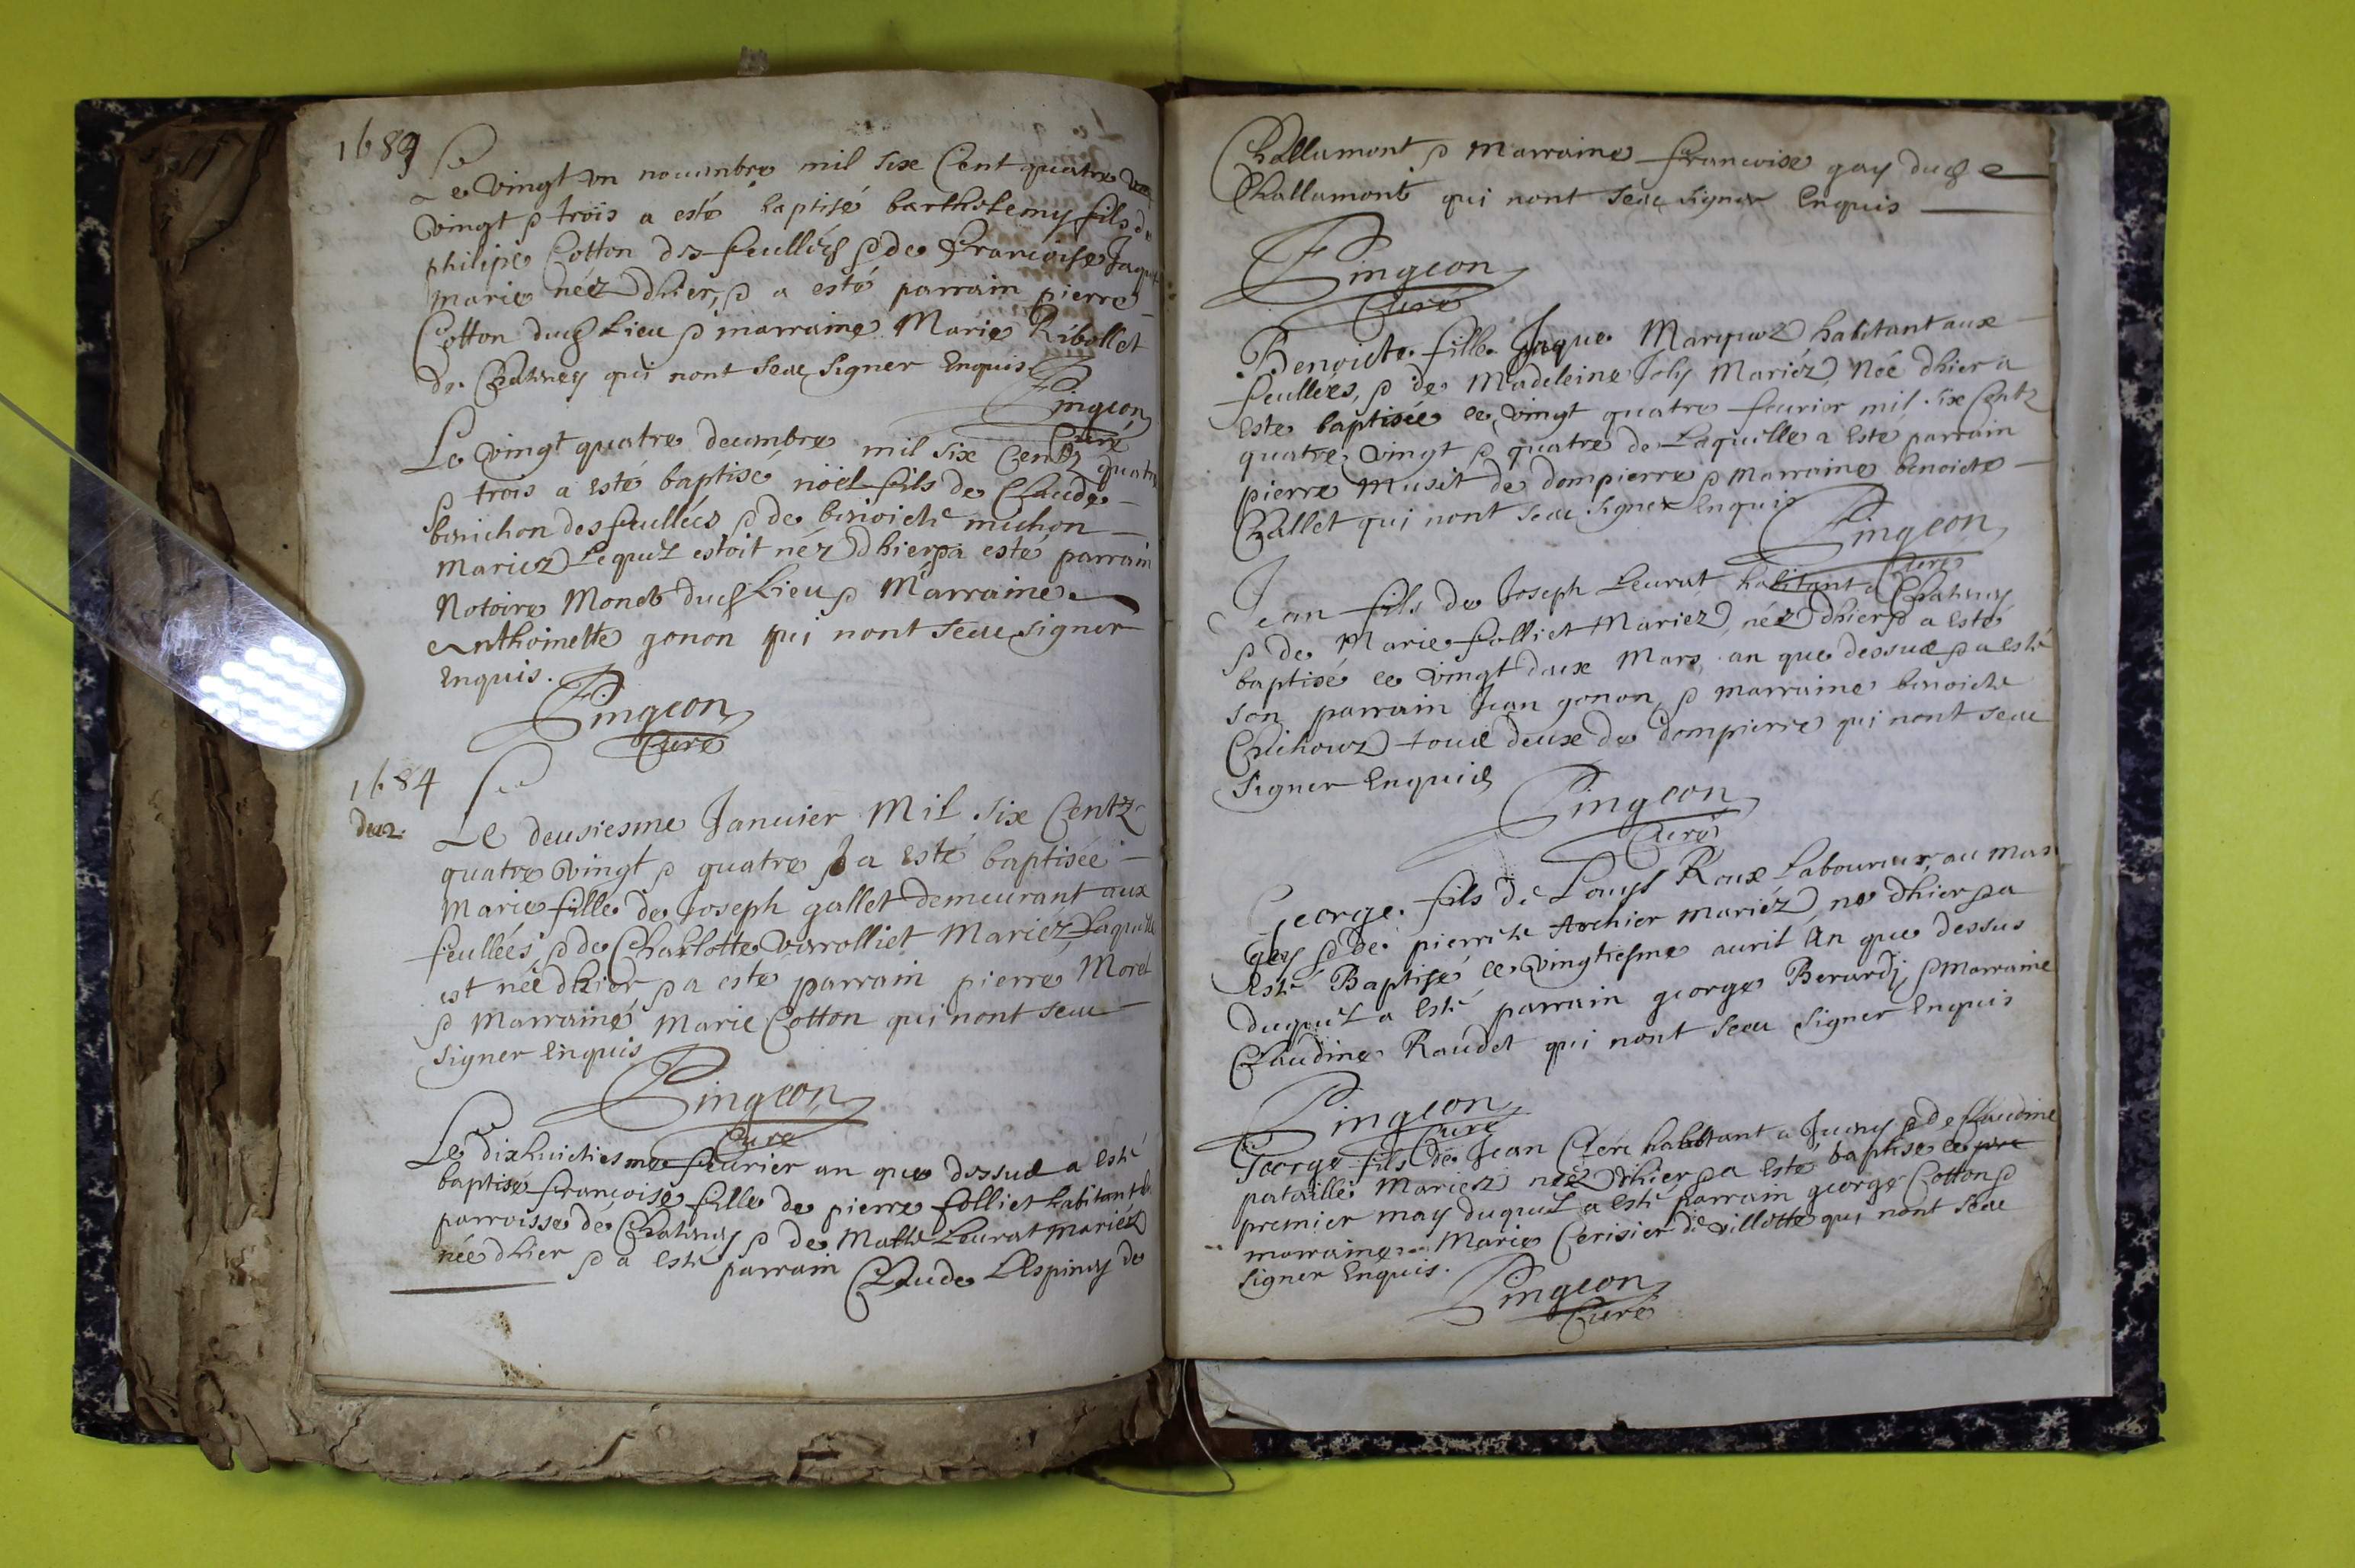 1683
Le vingt un nouembre mil six Cent quatre
vingt & trois a esté baptisé bartholemy fils de
philipe Cotton des feullées & de francoise
marie néz dhier, & a esté parrain pierre
Cotton dud Lieu & marraine Marie Ribollet
de Chatney qui nont sceu signer Enquis
Pingeon
Curé
Le vingt quatre decembre mil six Centz quatre
& trois a esté baptisé nöel fils de Claude
benichon des feullées & de benoiche michon
mariez Lequel estoit néz dhier & a esté parrain
Notoire Monet dud Lieu & Marraine
Anthoinette gonon qui nont sceu signer
Enquis.
Pingeon
Curé
1684
du 2.
Le deusiesme Januier Mil six Centz
quatre vingt & quatre & a Esté baptisée
Marie fille de Joseph gallet demeurant aux
feullées, & de Charlotte varolliet Mariez, Laquelle
est née dhier & a esté parrain pierre Morel
& Marraine Marie Cotton qui nont sceu
signer Enquis
Pingeon
Curé
Le dixhuictiesme feurier an que dessus a Esté
baptisé francoise fille de pierre folliet habitant
parroisse de Chatney & de Leurat mariéz
née dhier & a Esté parrain Claude Lespiney de
Challamont & Marraine francoise gay dud
Challamont qui nont sceu signer Enquis
Pingeon
Curé
Benoite fille Jaque habitant aux
feullées, & de Madeleine Joly Mariéz, Née dhier a
Este baptisée le vingt quatre feurier mil six Centz
quatre vingt & quatre de Laquelle a Esté parrain
pierre Musit de dompierre & Marraine benoicte
Challet qui nont sceu signer Enquis
Pingeon
Curé
Jean fils de Joseph Leurat habitant a Chatney
& de Marie folliet Mariez, néz dhier & a Esté
baptisé le vingt deux Mars an que dessus & a esté
son parrain Jean gonon, & marraine benoiche
tous deux de dompierre qui nont sceu
signer Enquis
Pingeon
Curé
George fils de Louys Roux Laboureur, au mas
gey & de pierrete Archier mariéz, né dhier & a
Esté Baptisé le vingtiesme auril An que dessus
duquel a Esté parrain george Berardj, & Marraine
Claudine Raudet qui nont sceu signer Enquis
Pingeon
Curé
George fils de Jean Clerc habitant a & de Claudine
pataille Mariez néz dhier & a Esté baptisé le
premier may duquel a Esté parrain george Cotton &
marraine Marie Cerisier de villette qui nont sceu
signer Enquis.
Pingeon
Curé